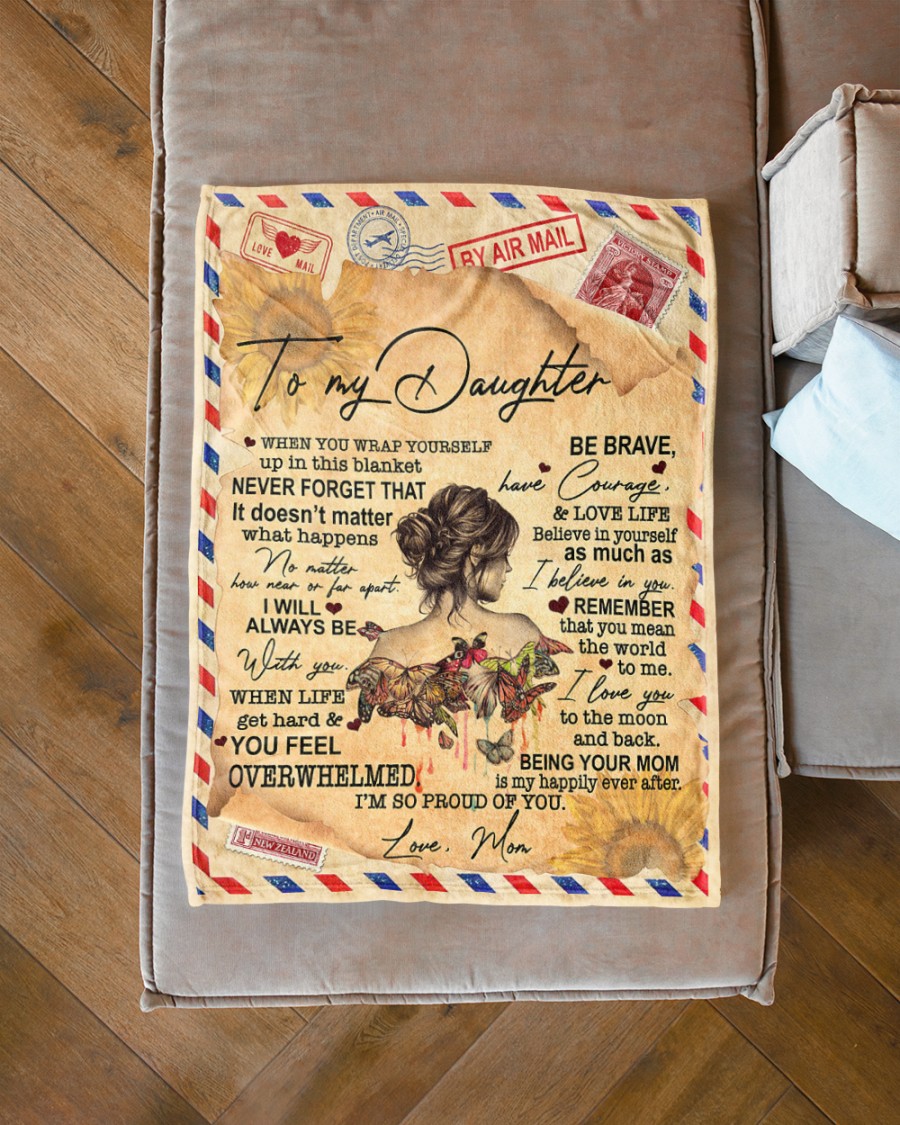 LOVE MAIL
DEPARTMENT • AIR MAIL
BY AIR MAIL
To my Daughter
WHEN YOU WRAP YOURSELF
up in this blanket
NEVER FORGET THAT
It doesn't matter
what happens
No matter
how near or far apart.
I WILL
ALWAYS BE
With you.
WHEN LIFE
get hard &
YOU FEEL
OVERWHELMED.
BE BRAVE,
have Courage,
& LOVE LIFE
Believe in yourself
as much as
I believe in you.
REMEMBER
that you mean
the world
to me.
I love you
to the moon
and back.
BEING YOUR MOM
is my happily ever after.
I'M SO PROUD OF YOU.
Love, Mom
1D NEW ZEALAND